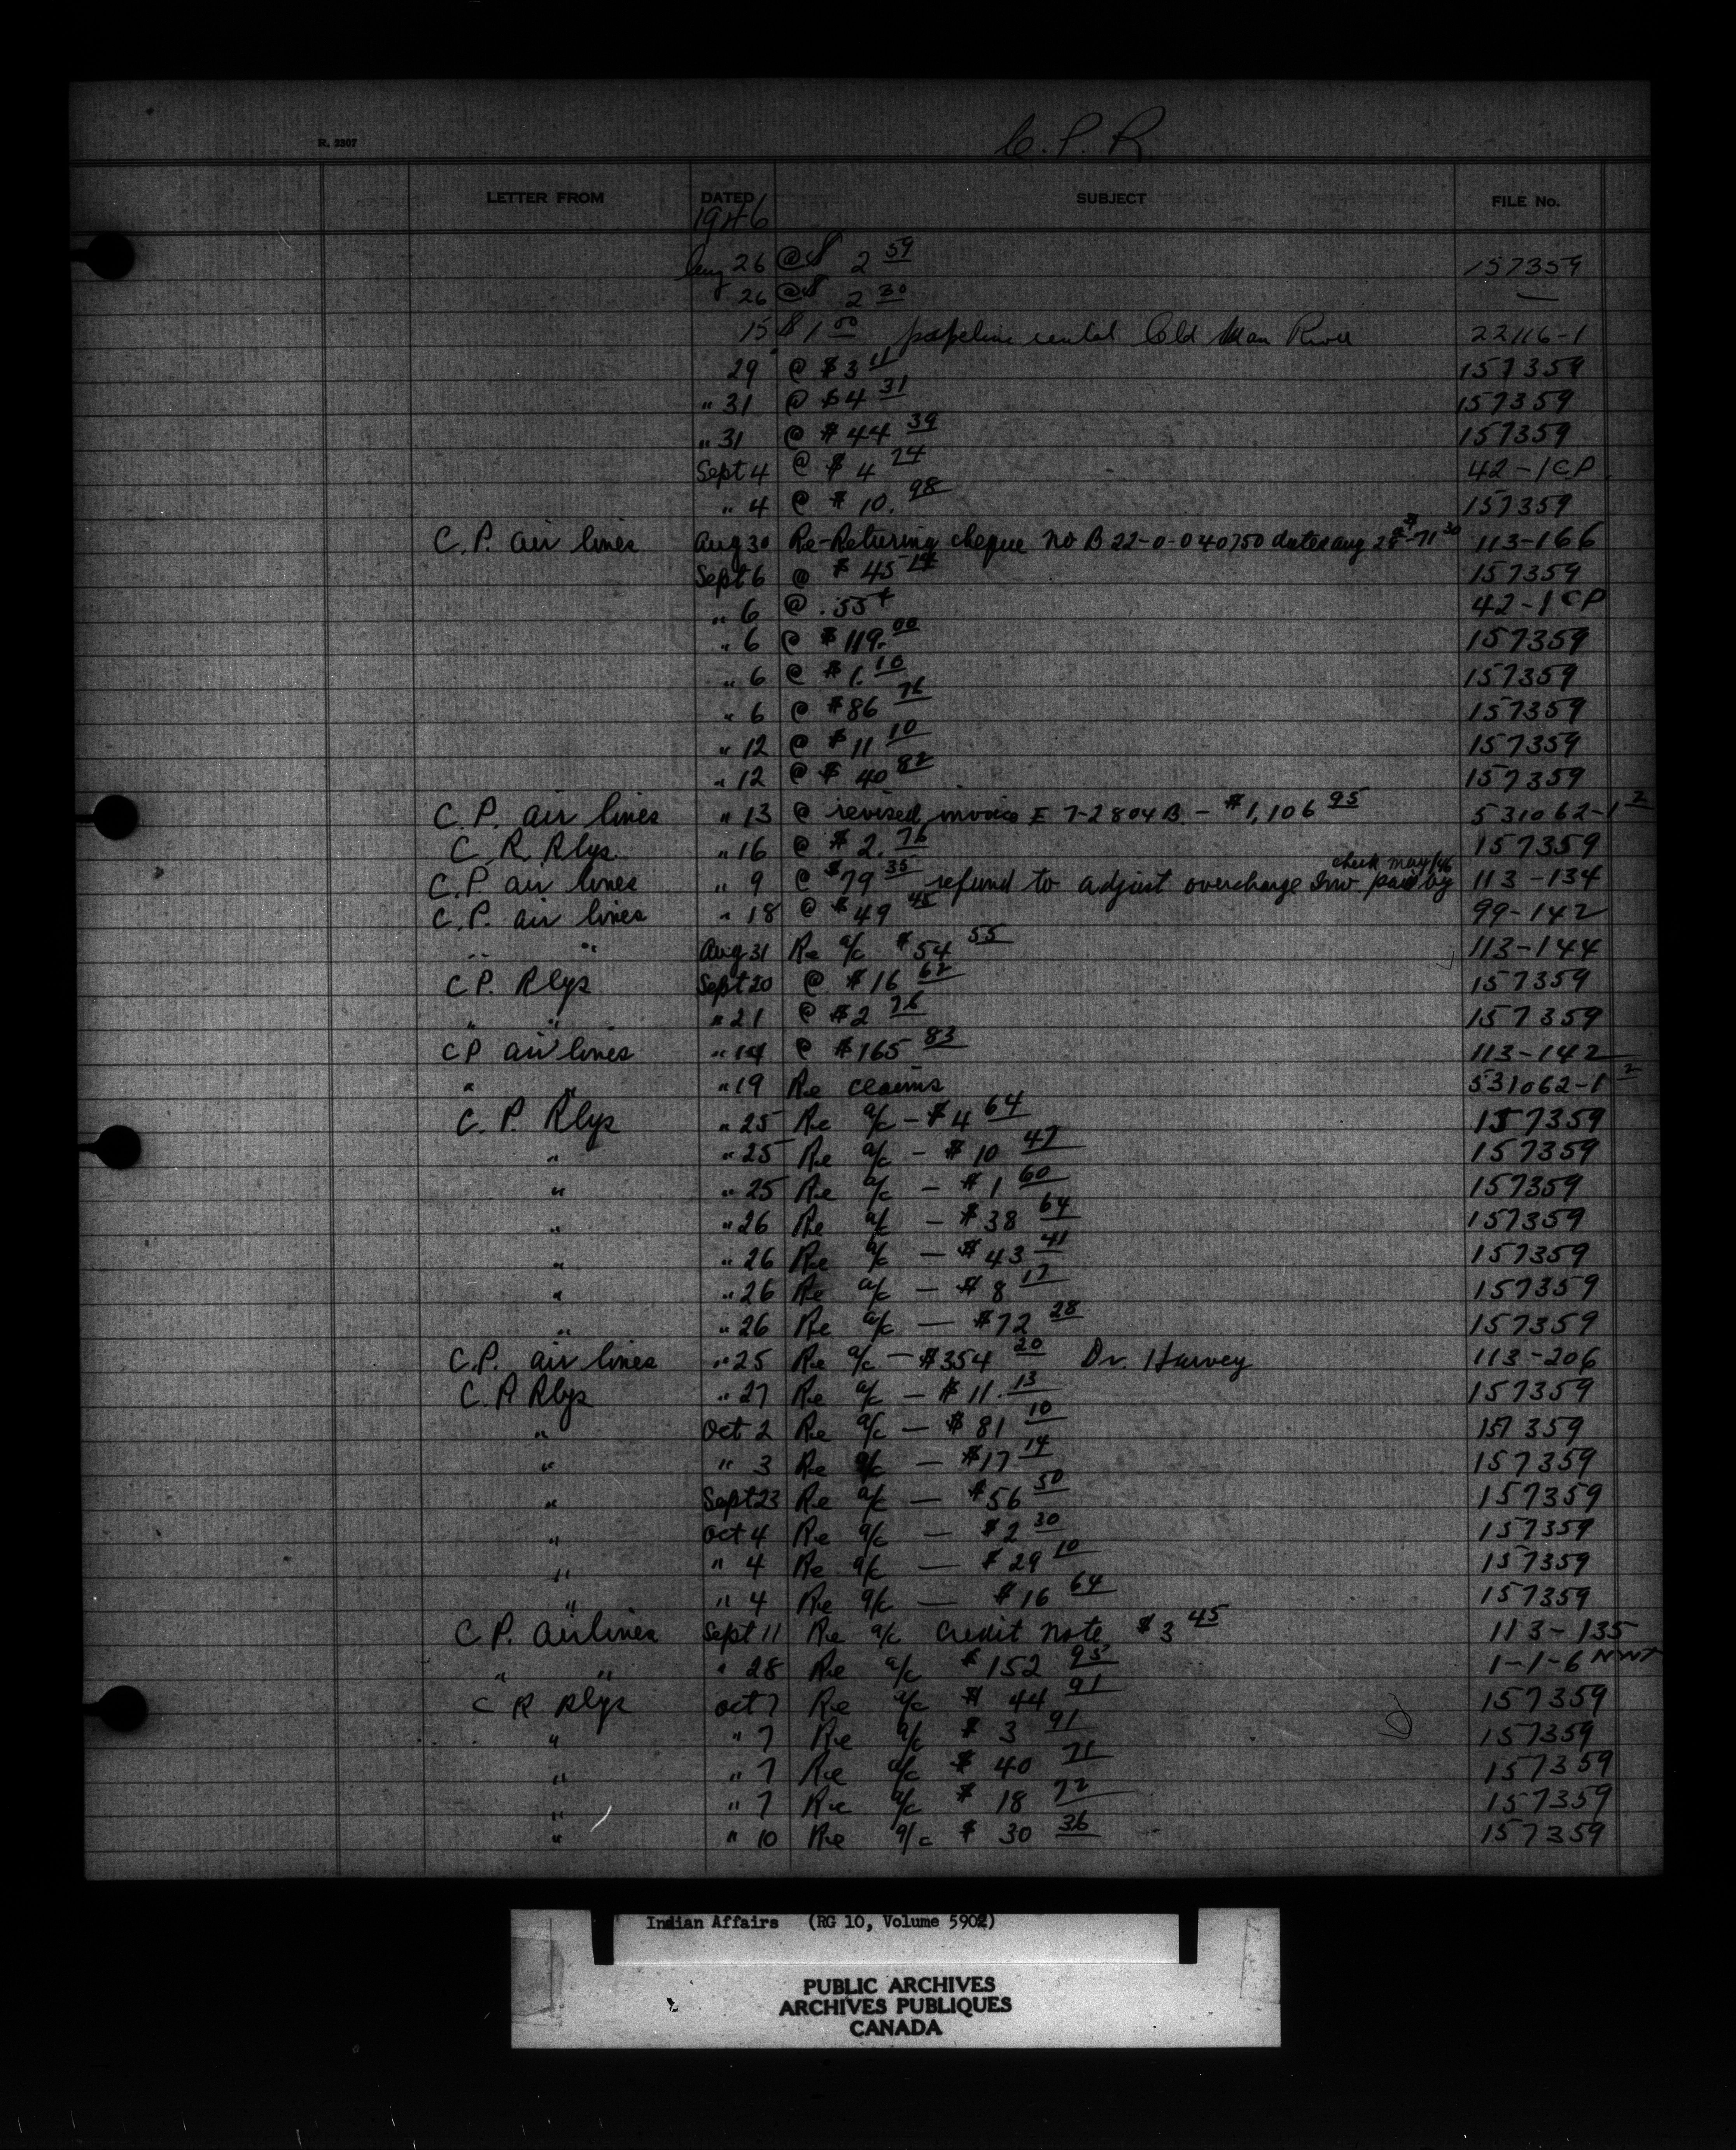 C.P.R.
R. 3307
LETTER FROM DATED SUBJECT FILE No.
1946
Aug 26 @ $ 2 59 157359
26 @ $ 2 30 —
15 $ 1 00 pipeline rental Old Man River 22116-1
29 @ $3 11 157359
" 31 @ $4 31 157359
" 31 @ $44 39 157359
Sept 4 @ $4 24 42-1CP
" 4 @ $10.98 157359
C.P. air lines Aug 30 Re-Returing cheque No B 22-0-040750 dated aug 28 - $71 30 113-166
Sept 6 @ $45 157359
" 6 @ .55¢ 42-1CP
" 6 @ $119.00 157359
" 6 @ $1.10 157359
" 6 @ $86 76 157359
" 12 @ $11 10 157359
" 12 @ $40 82 157359
C.P. air lines " 13 @ revised invoice E 7-2804B - $1,106 95 531062-1 2
C.R. Rlys. " 16 @ $2.76 157359
check may/46
C.P. air lines " 9 @ $79 35 refund to adjust overcharge Inv. paid by 113-134
C.P. air lines " 18 @ $49 45 99-142
" " Aug 31 Re a/c $54 55 113-144
C.P. Rlys Sept 20 @ $16 62 157359
" " " 21 @ $2 76 157359
C.P air lines " 14 @ $165 83 113-142
" " " 19 Re claims 531062-1 2
C.P. Rlys " 25 Re a/c - $4 64 157359
" " 25 Re a/c - $10 47 157359
" " 25 Re a/c - $1 60 157359
" " 26 Re a/c - $38 64 157359
" " 26 Re a/c - $43 41 157359
" " 26 Re a/c - $8 17 157359
" " 26 Re a/c - $72 28 157359
C.P. air lines " 25 Re a/c - $354 20 Dr. Harvey 113-206
C.P Rlys " 27 Re a/c - $11.13 157359
" Oct 2 Re a/c - $81 10 157359
" " 3 Re a/c - $17 14 157359
" Sept 23 Re a/c - $56 50 157359
" Oct 4 Re a/c - $2 30 157359
" " 4 Re a/c - $29 10 157359
" " 4 Re a/c - $16 64 157359
C.P. Airlines Sept 11 Re a/c Credit Note $3 45 113-135
" " " 28 Re a/c $152 95 1-1-6 NWT
C P Rlys Oct 7 Re a/c $44 91 157359
" " 7 Re a/c $3 91 157359
" " 7 Re a/c $40 71 157359
" " 7 Re a/c $18 72 157359
" " 10 Re a/c $30 36 157359
Indian Affairs (RG 10, Volume 5902)
PUBLIC ARCHIVES
ARCHIVES PUBLIQUES
CANADA